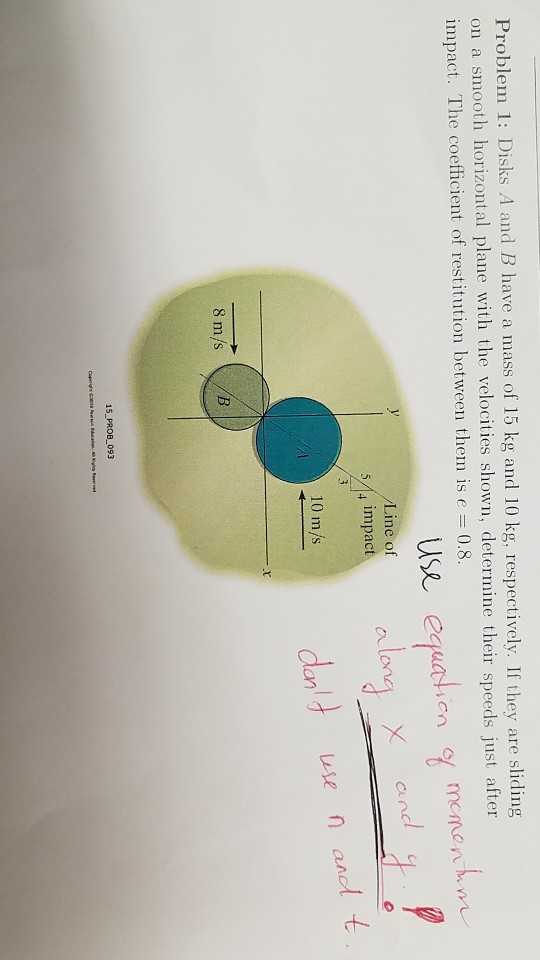 Problem 1: Disks A and B have a mass of 15 kg and 10 kg, respectively. If they are sliding
on a smooth horizontal plane with the velocities shown, determine their speeds just after
impact. The coefficient of restitution between them is e = 0.8.
Use equation of momentum
along x and y.
don't use n and t.
y
Line of
impact
5
4
3
A
10 m/s
x
B
8 m/s
15_PROB_093
Copyright ©2016 Pearson Education, All Rights Reserved